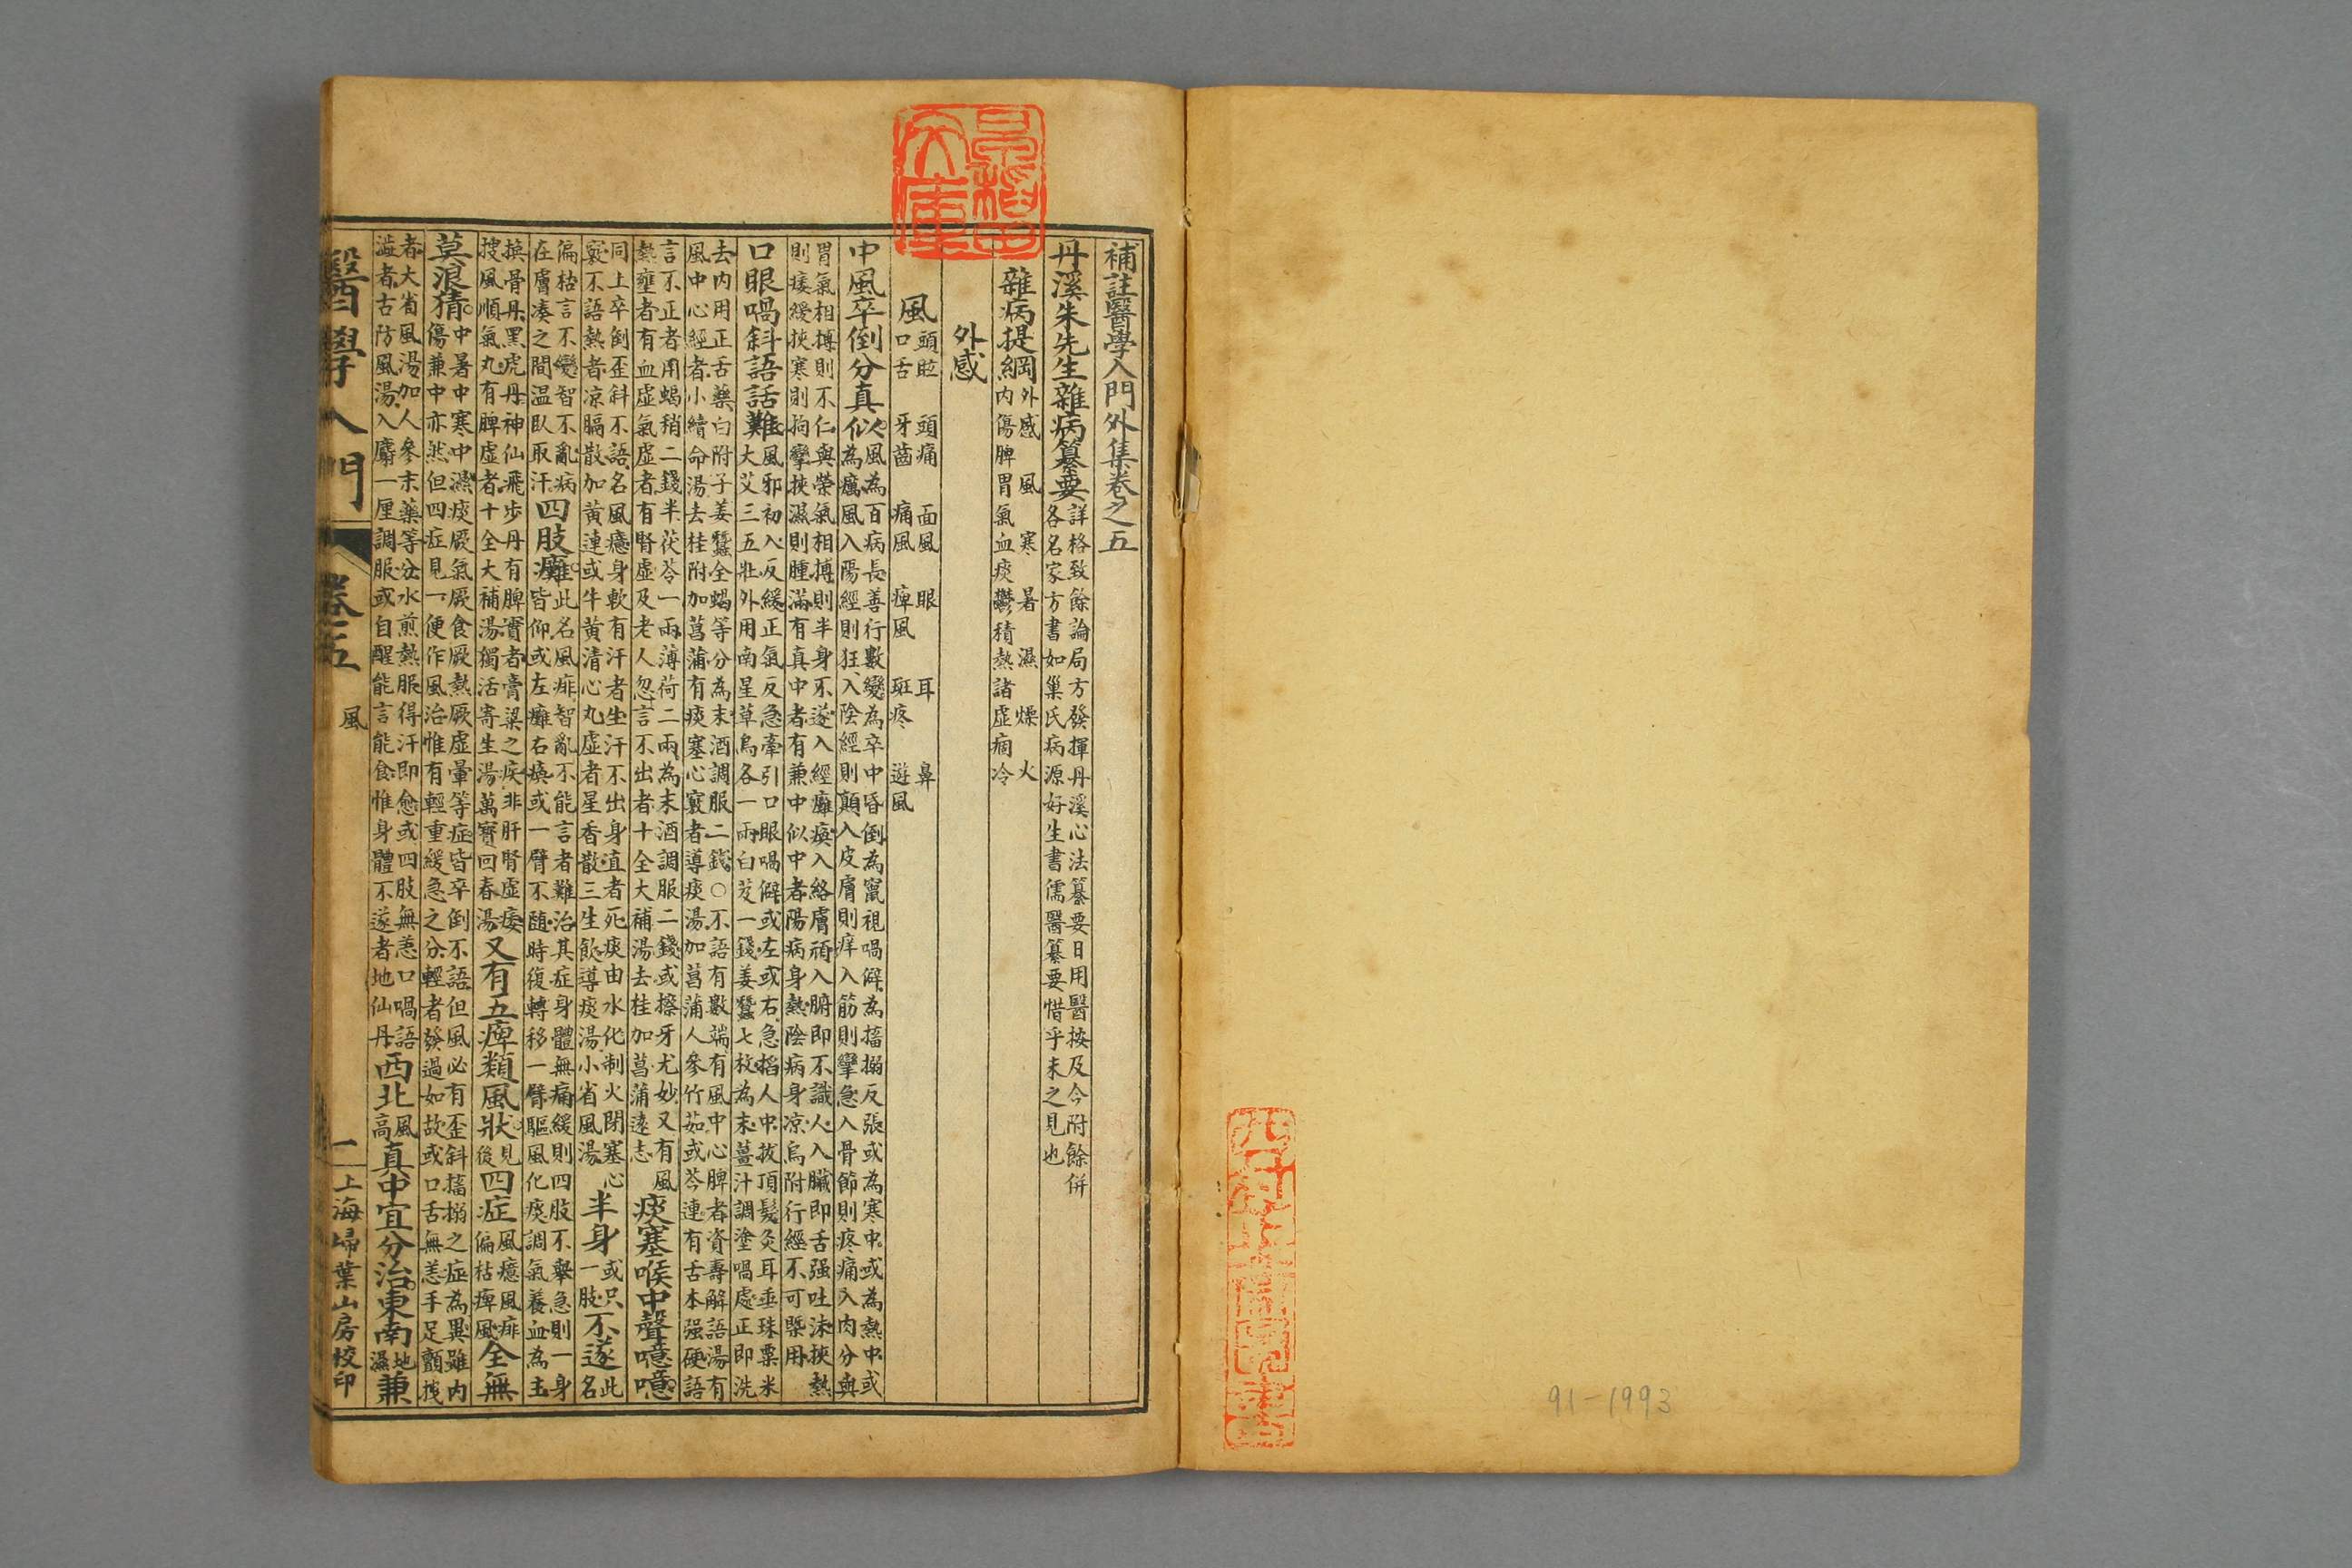 補註醫學入門外集卷之五
丹溪朱先生雜病纂要
詳格致餘論局方發揮丹溪心法纂要日用醫按及今附餘併
各名家方書如巢氏病源好生書儒醫纂要惜乎未之見也
雜病提綱
外感 風 寒 暑 濕 燥 火
內傷脾胃氣血痰鬱積熱諸虛痼冷
外感
風
頭眩 頭痛 面風 眼 耳 鼻
口舌 牙齒 痛風 痺風 斑疹 遊風
中風卒倒分真似
風為百病長善行數變為卒中昏倒為竄視喎僻為搐搦反張或為寒中或為熱中或
為癘風入陽經則狂入陰經則顛入皮膚則痒入筋則攣急入骨節則疼痛入肉分與
胃氣相搏則不仁與榮氣相搏則半身不遂入經癱瘓入絡膚頑入腑即不識人入臟即舌强吐沫挾熱
則痿緩挾寒則拘攣挾濕則腫滿有真中者有兼中似中者陽病身熱陰病身凉烏附行經不可槩用
口眼喎斜語話難
風邪初入反緩正氣反急牽引口眼喎僻或左或右急搯人中拔頂髮灸耳垂珠粟米
大艾三五壯外用南星草烏各一兩白芨一錢姜蠶七枚為末薑汁調塗喎處正即洗
去內用正舌藥白附子姜蠶全蝎等分為末酒調服二錢○不語有數端有風中心脾者資壽解語湯有
風中心經者小續命湯去桂附加菖蒲有痰塞心竅者導痰湯加菖蒲人參竹茹或芩連有舌本强硬語
言不正者用蝎稍二錢半茯苓一兩薄荷二兩為末酒調服二錢或擦牙尤妙又有風
熱壅者有血虛氣虛者有腎虛及老人忽言不出者十全大補湯去桂加菖蒲遠志
痰塞喉中聲噫噫
同上卒倒歪斜不語名風癔身軟有汗者生汗不出身直者死痰由水化制火閉塞心
竅不語熱者凉膈散加黃連或牛黃清心丸虛者星香散三生飲導痰湯小省風湯
半身
或只
一肢
不遂
此
名
偏枯言不變智不亂病
在膚湊之間温臥取汗
四肢癱
此名風痱智亂不能言者難治其症身體無痛緩則四股不舉急則一身
皆仰或左癱右瘓或一臂不隨時復轉移一臂驅風化痰調氣養血為主
換骨丹黑虎丹神仙飛步丹有脾實者膏粱之疾非肝腎虛痿
搜風順氣丸有脾虛者十全大補湯獨活寄生湯萬寶回春湯
又有五痺類風狀
見
後
四症
風癔風痱
偏枯痺風
全無
莫浪猜
中暑中寒中濕痰厥氣厥食厥熱厥虛暈等症皆卒倒不語但風必有歪斜搐搦之症為異雖內
傷兼中亦然但四症見一便作風治惟有輕重緩急之分輕者發過如故或口舌無恙手足顫拽
者大省風湯加人參末藥等分水煎熱服得汗即愈或四肢無恙口喎語
澁者古防風湯入麝一厘調服或自醒能言能食惟身體不遂者地仙丹
西北
風
高
真中宜分治東南
地
濕
兼
醫學入門
卷五
風
一
上海埽葉山房校印
91-1993